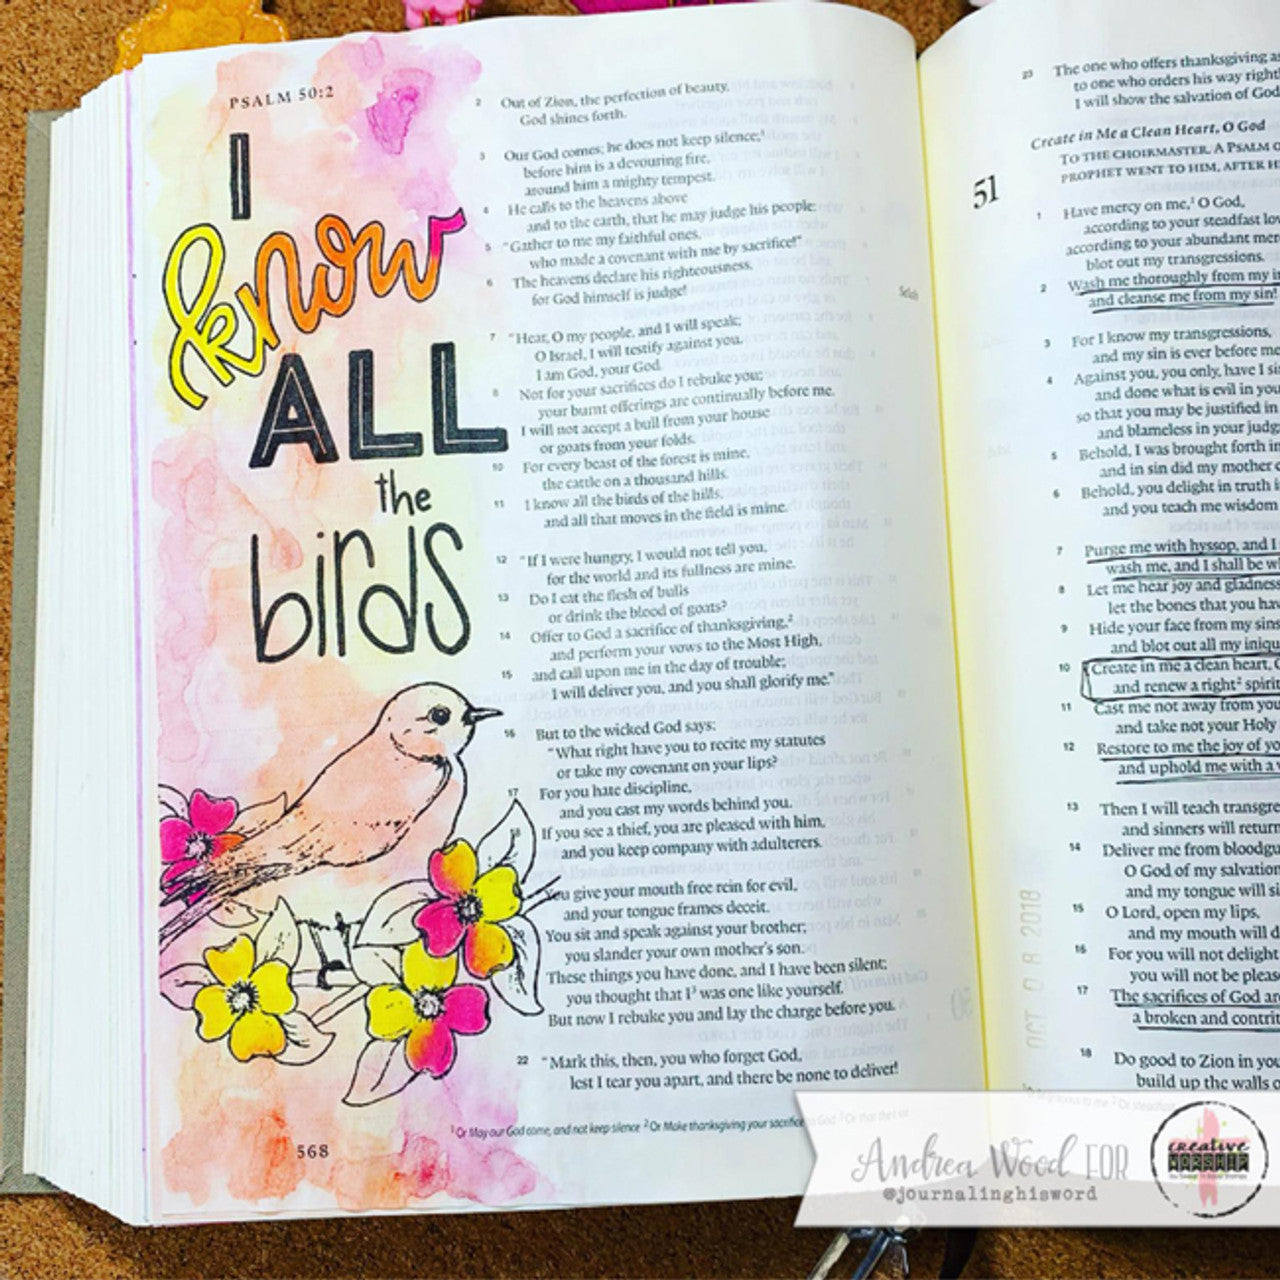 PSALM 50:2
I
know
ALL
the
birds
2 Out of Zion, the perfection of beauty,
God shines forth.
3 Our God comes; he does not keep silence;¹
before him is a devouring fire,
around him a mighty tempest.
4 He calls to the heavens above
and to the earth, that he may judge his people:
5 "Gather to me my faithful ones,
who made a covenant with me by sacrifice!"
6 The heavens declare his righteousness,
for God himself is judge!
Selah
7 "Hear, O my people, and I will speak;
O Israel, I will testify against you.
I am God, your God.
8 Not for your sacrifices do I rebuke you;
your burnt offerings are continually before me.
I will not accept a bull from your house
or goats from your folds.
10 For every beast of the forest is mine,
the cattle on a thousand hills.
11 I know all the birds of the hills,
and all that moves in the field is mine.
12 "If I were hungry, I would not tell you,
for the world and its fullness are mine.
13 Do I eat the flesh of bulls
or drink the blood of goats?
14 Offer to God a sacrifice of thanksgiving,²
and perform your vows to the Most High,
15 and call upon me in the day of trouble;
I will deliver you, and you shall glorify me."
16 But to the wicked God says:
"What right have you to recite my statutes
or take my covenant on your lips?
17 For you hate discipline,
and you cast my words behind you.
18 If you see a thief, you are pleased with him,
and you keep company with adulterers.
You give your mouth free rein for evil,
and your tongue frames deceit.
20 You sit and speak against your brother;
you slander your own mother's son.
These things you have done, and I have been silent;
you thought that I³ was one like yourself.
But now I rebuke you and lay the charge before you.
22 "Mark this, then, you who forget God,
lest I tear you apart, and there be none to deliver!
¹ Or May our God come, and not keep silence ² Or Make thanksgiving your sacrifice to God
568
23 The one who offers thanksgiving
to one who orders his way
I will show the salvation of God
Create in Me a Clean Heart, O God
51
TO THE CHOIRMASTER. A PSALM
PROPHET WENT TO HIM, AFTER
1 Have mercy on me,¹ O God,
according to your steadfast
according to your abundant
blot out my transgressions.
2 Wash me thoroughly from my
and cleanse me from my sin!
3 For I know my transgressions,
and my sin is ever before me
4 Against you, you only, have I
and done what is evil in
so that you may be justified in
and blameless in your
5 Behold, I was brought forth
and in sin did my mother
6 Behold, you delight in truth
and you teach me wisdom
7 Purge me with hyssop, and I
wash me, and I shall be
8 Let me hear joy and gladness
let the bones that you
9 Hide your face from my sins
and blot out all my
10 Create in me a clean heart,
and renew a right² spirit
11 Cast me not away from
and take not your Holy
12 Restore to me the joy of
and uphold me with a
13 Then I will teach
and sinners will return
14 Deliver me from
O God of my salvation
and my tongue will
15 O Lord, open my lips,
and my mouth will
16 For you will not delight
you will not be
17 The sacrifices of God
a broken and
18 Do good to Zion in
build up the walls
OCT 08 2018
Andrea Wood FOR
@journalinghisword
creative
WORSHIP